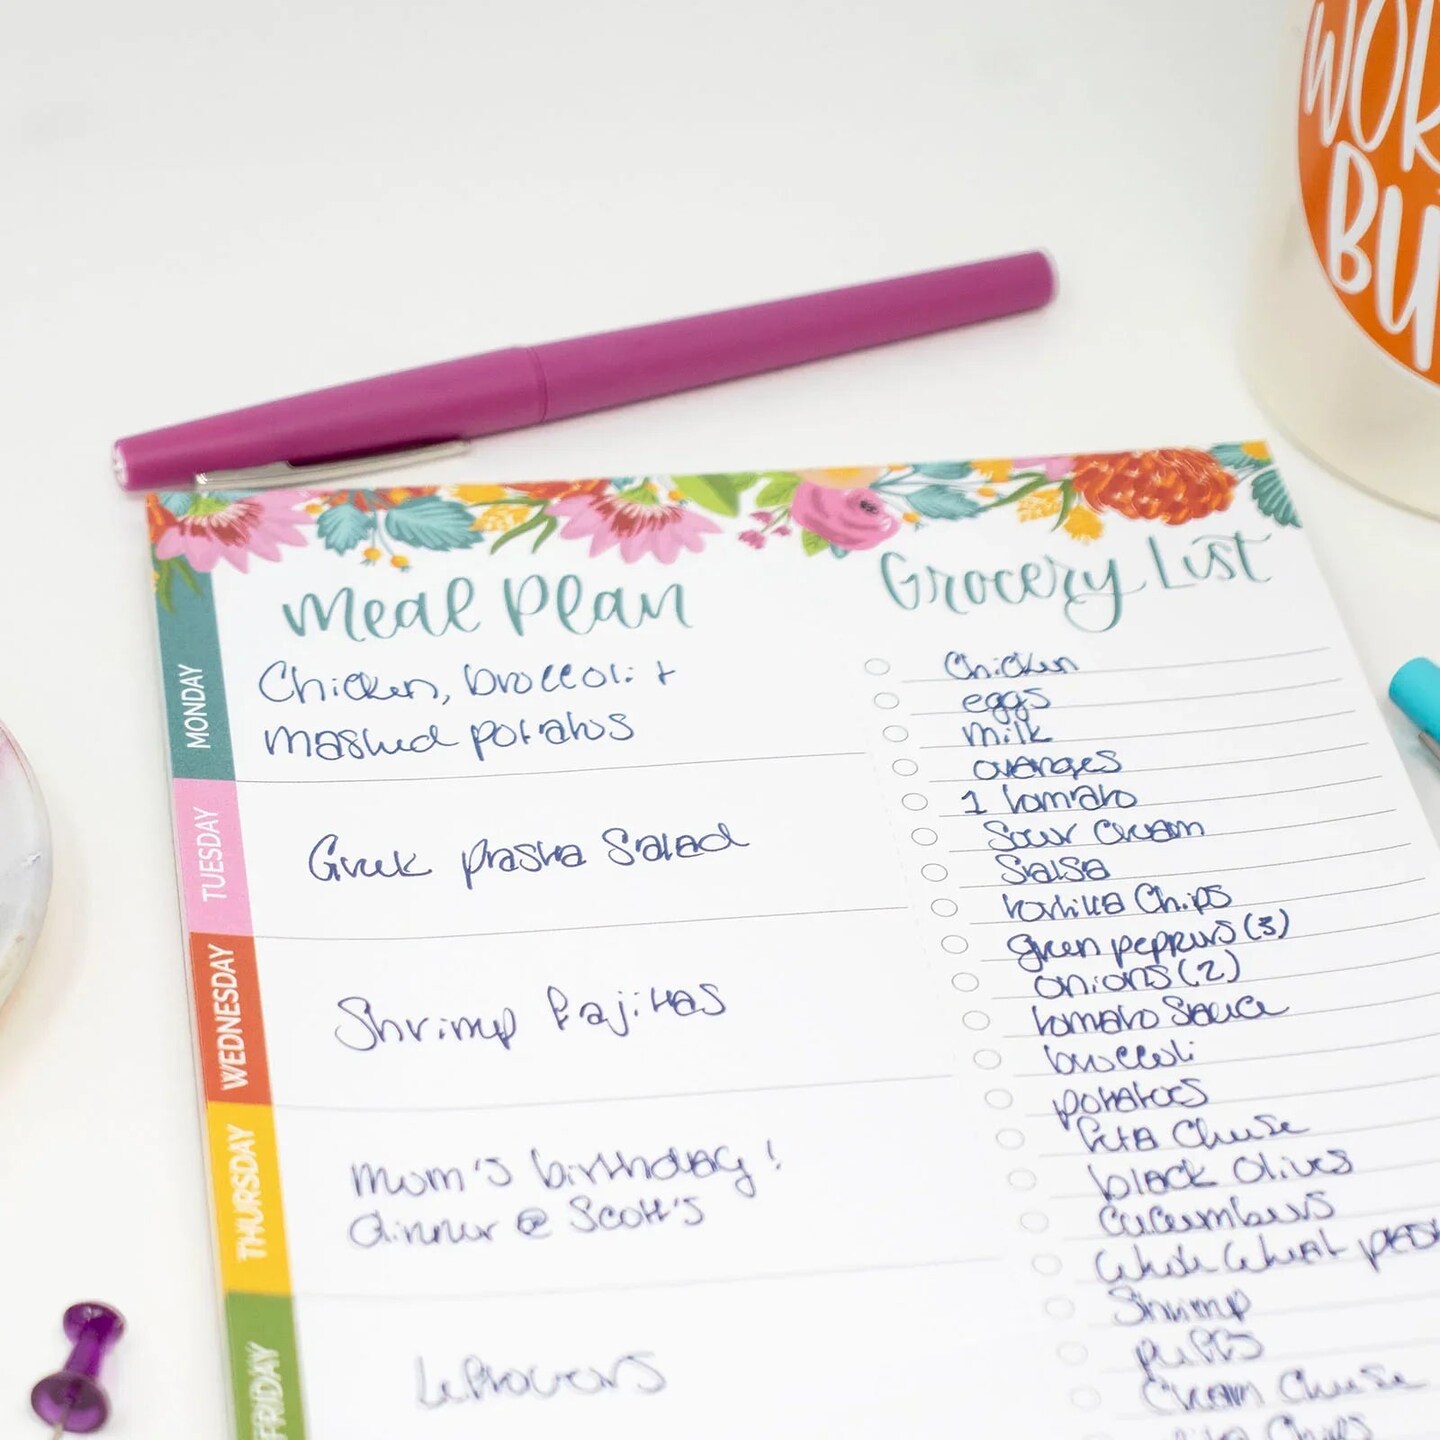 WOR
BU
Meal Plan
MONDAY
Chicken, broccoli +
mashed potatoes
TUESDAY
Greek pasta Salad
WEDNESDAY
Shrimp fajitas
THURSDAY
Mom's birthday!
dinner @ Scott's
FRIDAY
Leftovers
Grocery List
Chicken
eggs
milk
oranges
1 tomato
Sour Cream
Salsa
tortilla Chips
green peppers (3)
onions (2)
tomato Sauce
broccoli
potatoes
feta Cheese
black Olives
Cucumbers
Whole Wheat pas
Shrimp
puffs
Cream Cheese
Chips